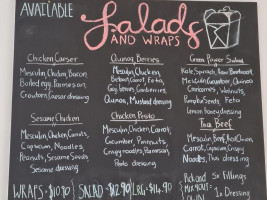 AVAILABLE
Salads
AND WRAPS
Chicken Caeser
Mesculin, Chicken, Bacon,
Boiled egg, Parmesan,
Croutons, Caeser dressing
Sesame Chicken
Mesculin, Chicken, Carrots,
Capsicum, Noodles,
Peanuts, Sesame Seeds
Sesame dressing
Quinoa Berries
Mesculin, Chicken,
Beetroot, Carrot, Feta,
Quinoa, Mustard dressing
Chicken Pesto
Mesculin, Chicken, Carrot,
Cucumber, Peanuts,
Crispy noodles, Parmesan,
Pesto dressing
Green Power Salad
Kale, Spinach, Raw Beetroot,
Mesculin, Cucumber, Quinoa,
Cranberries, Walnuts,
Pumpkin Seeds, Feta
Lemon honey dressing
Thai Beef
Mesculin, Beef, Red Onion,
Carrot, Capsicum, Crispy
Noodles, Thai dressing
WRAPS - $10.90 / SALAD - $12.90 / LRG - $14.90
Pick and
Mix your
Own
5x Fillings
1x Dressing